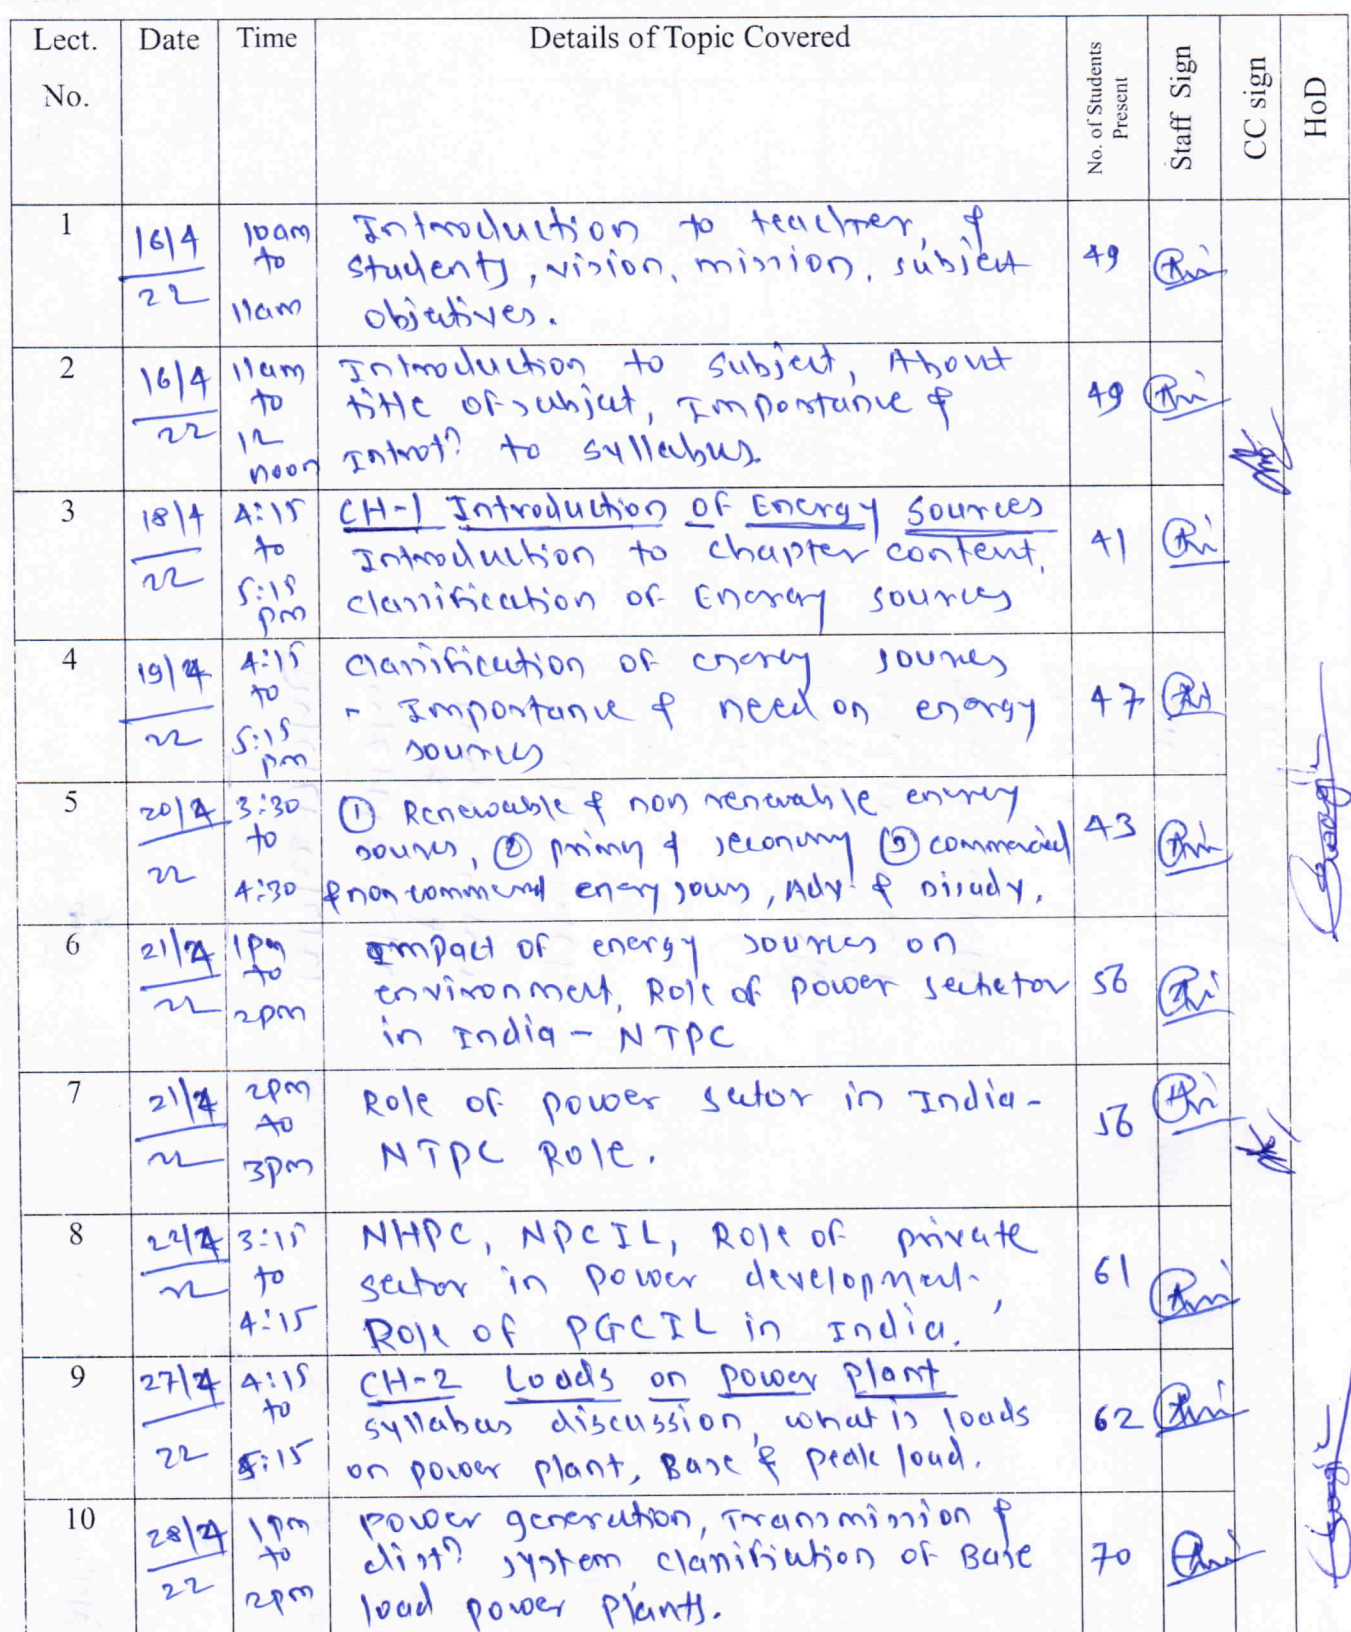 Lect. No. Date Time Details of Topic Covered No. of Students Present Staff Sign CC sign HoD
1 16/4/22 10am to 11am Introduction to teacher, & 49
students, vision, mission, subject
objectives.
2 16/4/22 11am to 12 noon Introduction to subject, About 49
title of subject, Importance &
to syllabus.
3 18/4/22 4:15 to 5:15 pm CH-1 Introduction of Energy Sources 41
Introduction to chapter content,
classification of Energy sources
4 19/4/22 4:15 to 5:15 pm classification of energy sources 47
- Importance & need on energy
sources
5 20/4/22 3:30 to 4:30 ① Renewable & non renewable energy 43
sources, ② & ③ commercial
& non energy , Adv. & Disadv.
6 21/4/22 1pm to 2pm Impact of energy sources on 56
environment, Role of power
in India - NTPC
7 21/4/22 2pm to 3pm Role of power sector in India - 56
NTPC Role.
8 22/4/22 3:15 to 4:15 NHPC, NPCIL, Role of private 61
sector in power development,
Role of PGCIL in India.
9 27/4/22 4:15 to 5:15 CH-2 Loads on power plant 62
syllabus discussion, what is loads
on power plant, Base & peak load.
10 28/4/22 1pm to 2pm power generation, Transmission & 70
system, classification of Base
load power plants.